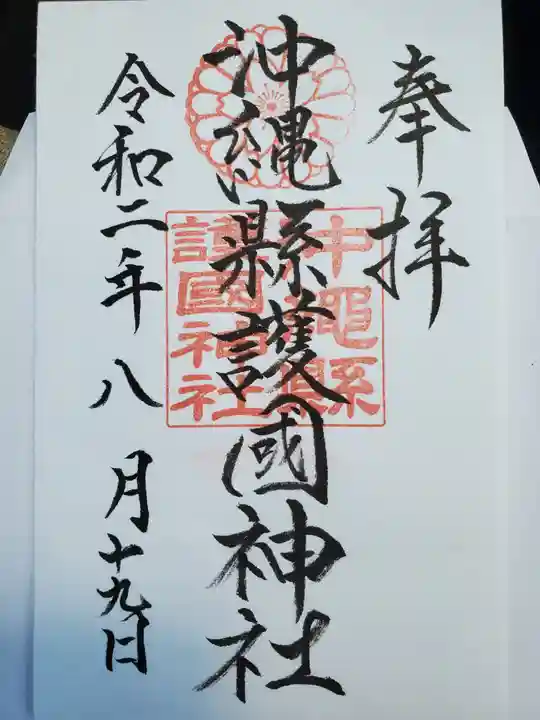 奉拝
沖縄縣護國神社
沖縄縣
護國神社
令和二年八月十九日